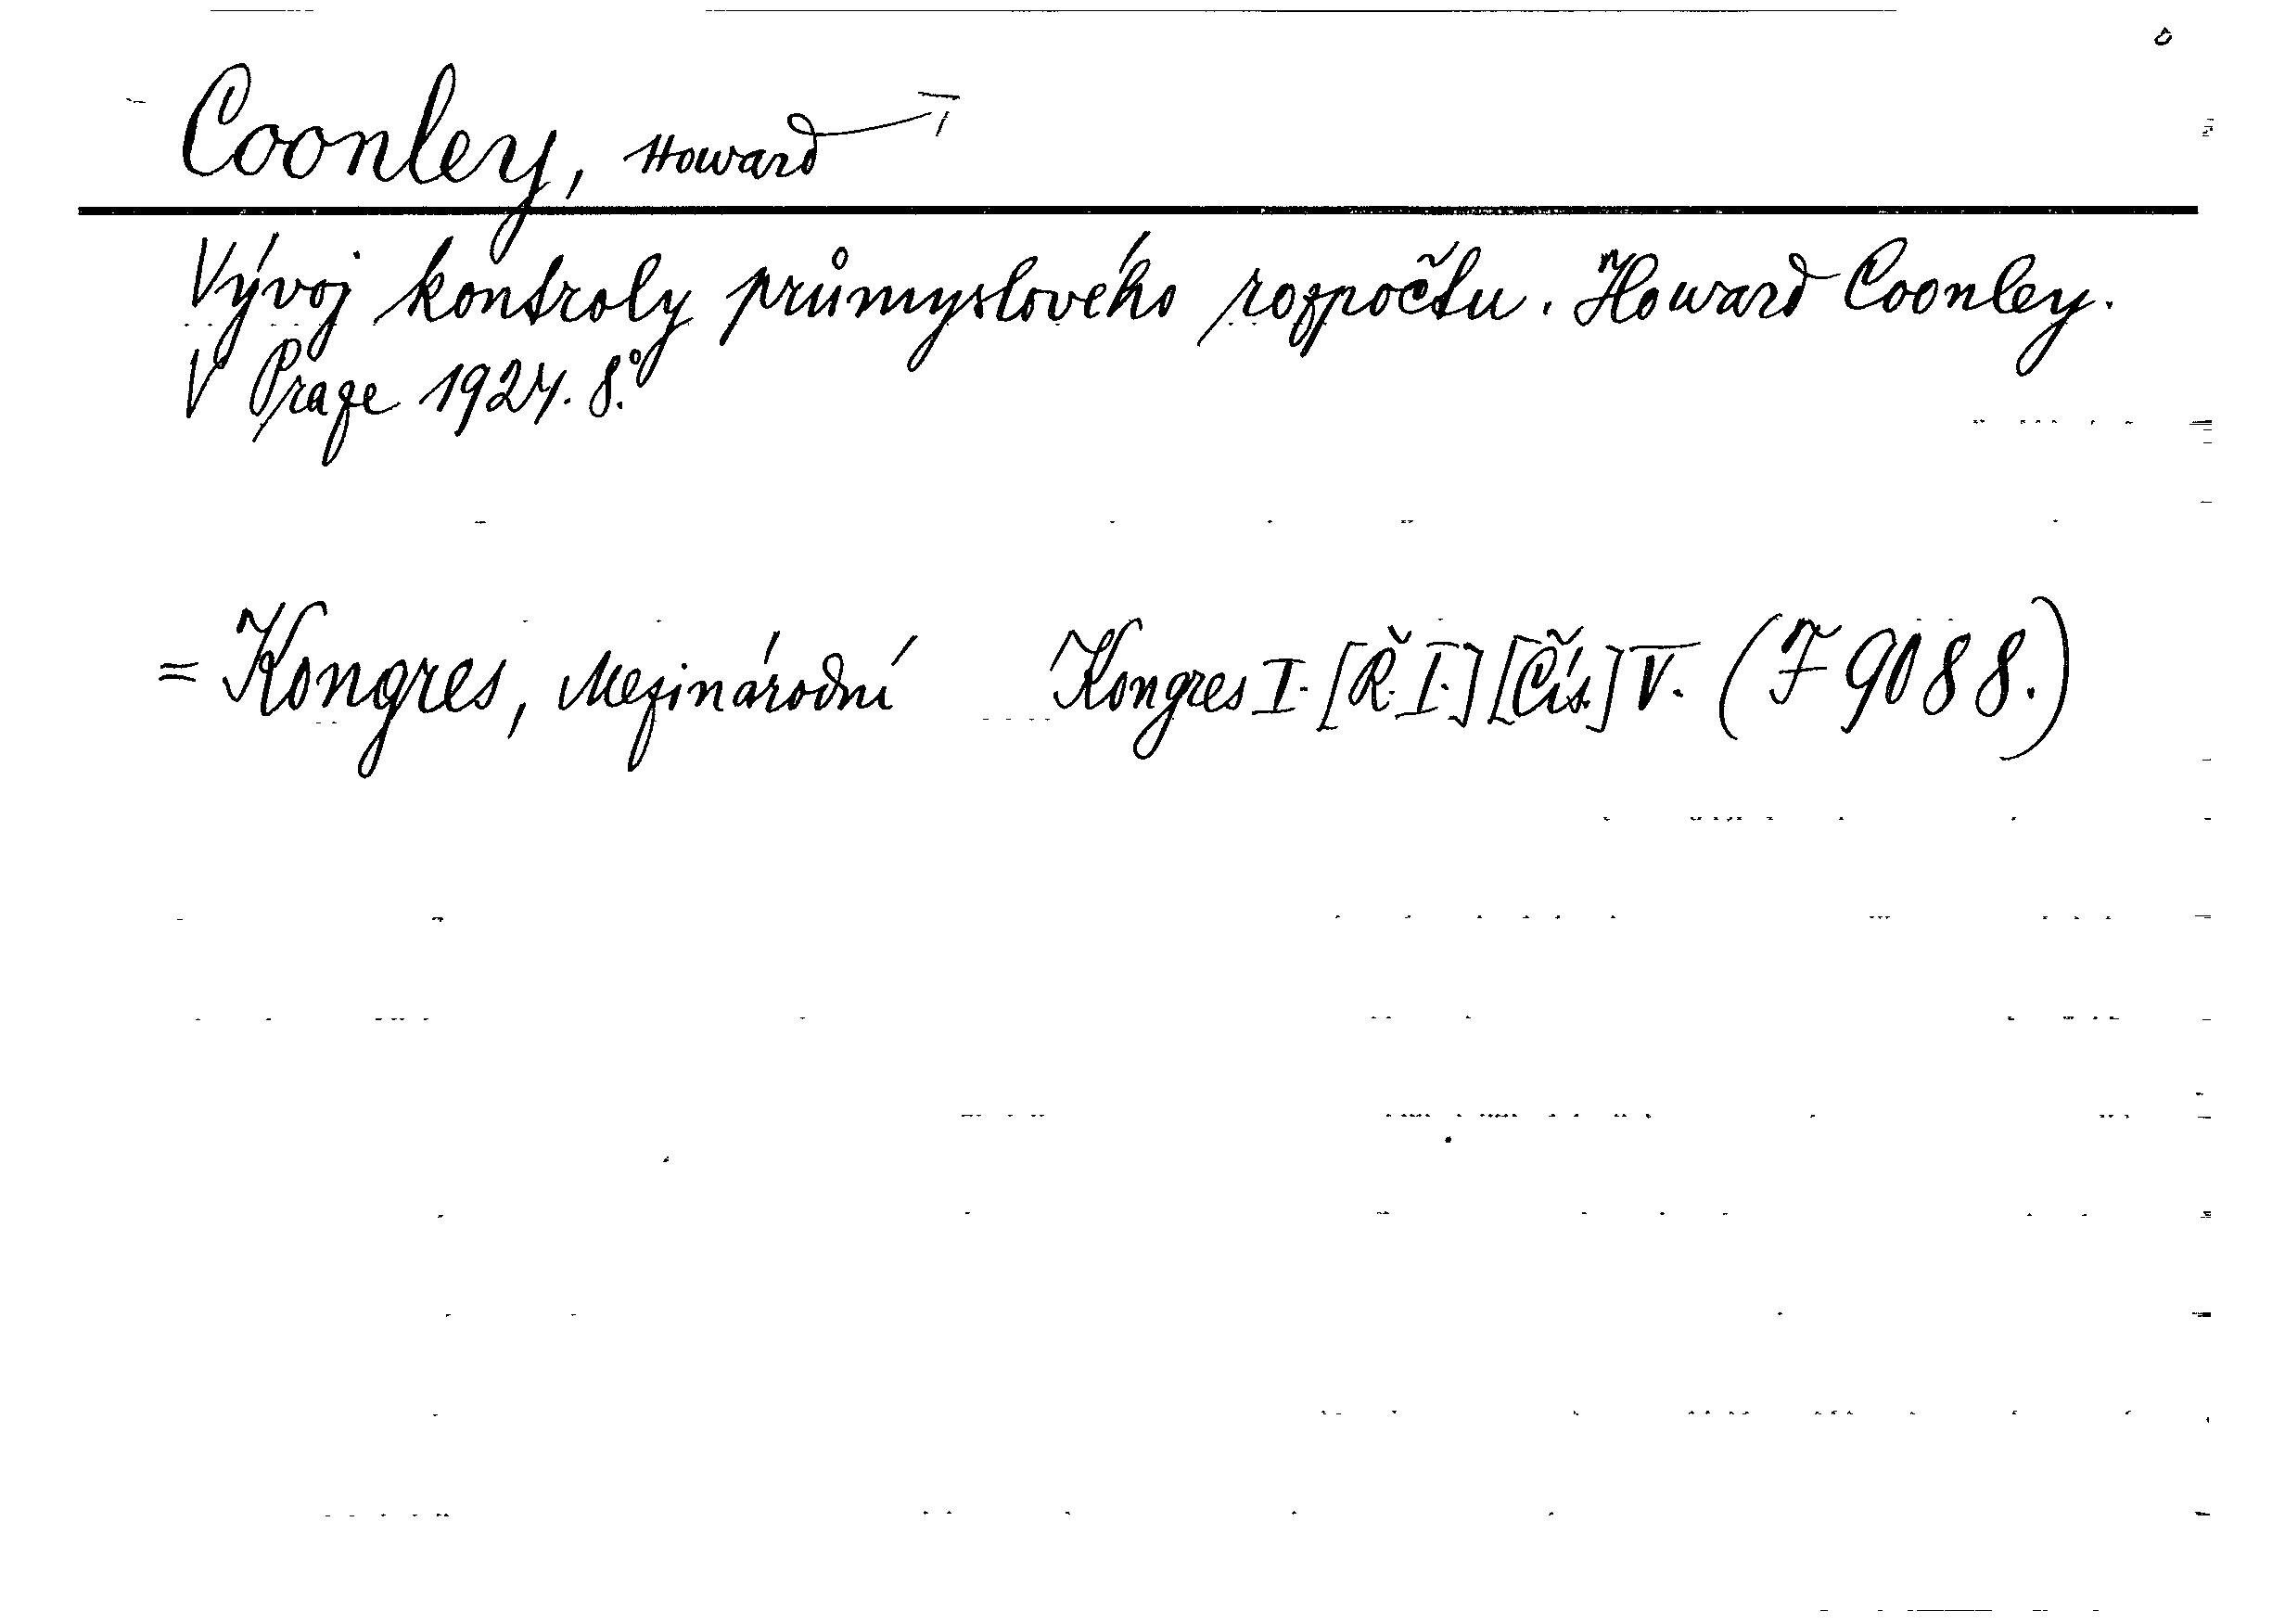 Coonley, Howard
Vývoj kontroly průmyslového rozpočtu. Howard Coonley.
V Praze 1924. 8.°
= Kongres, Mezinárodní Kongres I. [Ř. I.] [Čís.] V. (F 9088.)